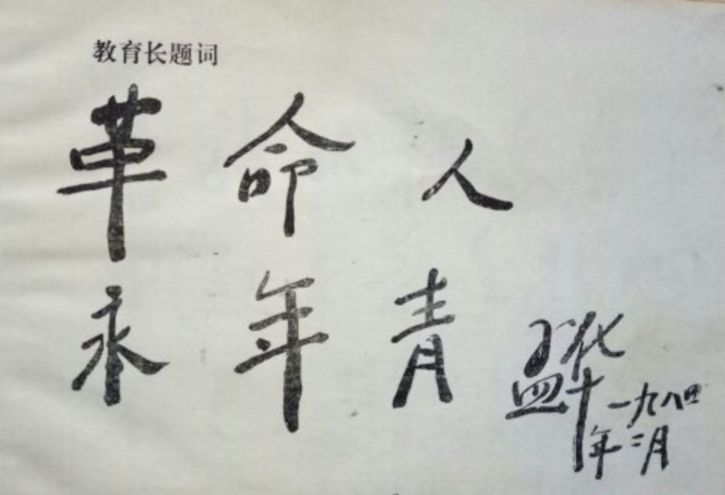 教育长题词
革命人
永年青
孟华
一九八四年二月